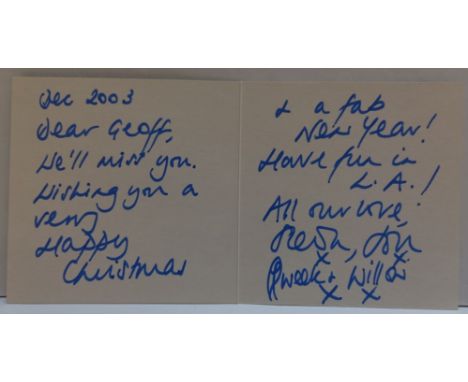 Dec 2003
Dear Geoff,
We'll miss you.
Wishing you a
very
Happy
Christmas
& a fab
New Year!
Have fun in
L.A.!
All our love,
Jon
& Willow
x x
x x